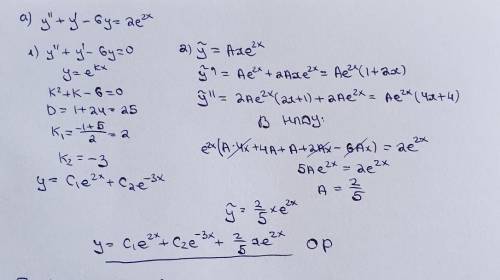 а) y'' + y' - 6y = 2e^{2x}
1) y'' + y' - 6y = 0
y = e^{kx}
k² + k - 6 = 0
D = 1 + 24 = 25
k₁ = \frac{-1+5}{2} = 2
k₂ = -3
y = C₁e^{2x} + C₂e^{-3x}
2) ỹ = Axe^{2x}
ỹ' = Ae^{2x} + 2Axe^{2x} = Ae^{2x}(1+2x)
ỹ'' = 2Ae^{2x}(2x+1) + 2Ae^{2x} = Ae^{2x}(4x+4)
В НЛДУ:
e^{2x}(A·4x + 4A + A + 2Ax - 6Ax) = 2e^{2x}
5Ae^{2x} = 2e^{2x}
A = \frac{2}{5}
ỹ = \frac{2}{5}xe^{2x}
y = C₁e^{2x} + C₂e^{-3x} + \frac{2}{5}xe^{2x} ОР